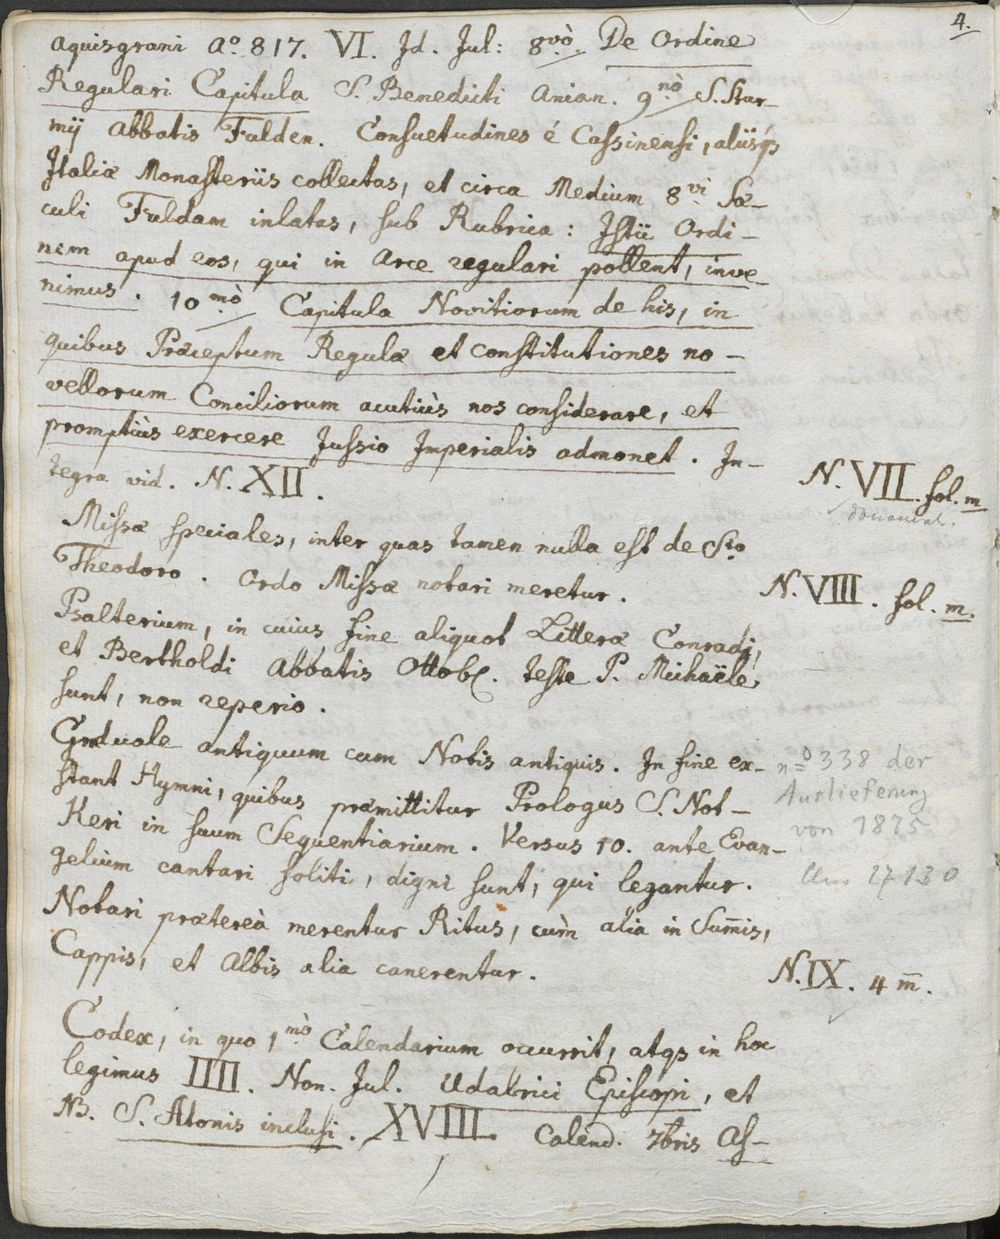 4.
Aquisgrani Aº 817. VI. Jd. Jul: 8vò. De Ordine
Regulari Capitula S. Benedicti Anian. 9nò S. Stur-
mij Abbatis Fulden. Consuetudines é Cassinensi, aliisqs
Italiæ Monasteriis collectas, et circa Medium 8vi Sæ-
culi Fuldam inlatas, sub Rubrica: Istü Ordi-
nem apud eos, qui in Arce regulari pollent, inve
nimus. 10mò Capitula Novitiorum de his, in
quibus Præceptum Regulæ et constitutiones no-
vellorum Conciliorum acutiùs nos considerare, et
promptiùs exercere Jussio Imperialis admonet. In-
tegra vid. N. XII.
N. VII. fol. m
Missæ speciales, inter quas tamen nulla est de Sto
Theodoro. Ordo Missæ notari meretur.
N. VIII. fol. m.
Psalterium, in cuius fine aliquot Litteræ Conradi,
et Bertholdi Abbatis Ottob. teste P. Michaële
sunt, non reperio.
Graduale antiquum cum Notis antiquis. In fine ex-
stant Hymni, quibus præmittitur Prologus S. Not-
Keri in suum Sequentiarium. Versus 10. ante Evan-
gelium cantari soliti, digni sunt, qui legantur.
Notari prætereà merentur Ritus, cùm alia in Sum̄is,
Cappis, et Albis alia canerentur.
nº 338 der
Auslieferung
von 1875
27130
N. IX. 4 m̄.
Codex, in quo 1mò Calendarium occurrit, atqs in hoc
legimus IIII. Non. Jul. Udalrici Episcopi, et
NB. S. Atonis inclusi. XVIII. Calend. 7bris As-